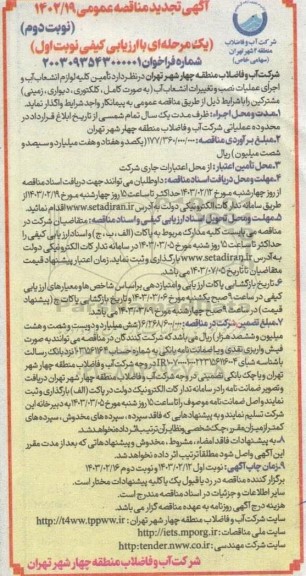 آگهی تجدید مناقصه عمومی ۱۴۰۲/۱۹
(نوبت دوم)
(یک مرحله‌ای با ارزیابی کیفی نوبت اول)
شماره فراخوان ۲۰۰۳۰۹۳۵۴۳۰۰۰۰۰۱
شرکت آب و فاضلاب
منطقه ۴ شهر تهران
(سهامی خاص)
شرکت آب و فاضلاب منطقه چهار شهر تهران در نظر دارد تأمین کلیه لوازم انشعاب آب و
اجرای عملیات نصب و تغییرات انشعاب آب (به صورت کامل، کلکتوری، دیواری، زمینی)
مشترکین را با شرایط ذیل از طریق مناقصه عمومی به پیمانکار واجد شرایط واگذار نماید.
۱.مدت و محل اجرا: ظرف مدت یک سال تمام شمسی از تاریخ ابلاغ قرارداد در
محدوده عملیاتی شرکت آب و فاضلاب منطقه چهار شهر تهران
۲.مبلغ برآوردی مناقصه: ۱۷۷/۳۶۰/۰۰۰/۰۰۰ (یکصد و هفتاد و هفت میلیارد و سیصد و
شصت میلیون) ریال
۳.محل تأمین اعتبار: از محل اعتبارات جاری شرکت
۴.مهلت و محل دریافت اسناد مناقصه: داوطلبان می‌توانند جهت دریافت اسناد مناقصه
از روز چهارشنبه مورخ ۱۴۰۳/۰۲/۱۲ حداکثر تا ساعت ۱۵ روز چهارشنبه مورخ ۱۴۰۳/۰۲/۱۹ از
طریق سامانه تدارکات الکترونیکی دولت به آدرس www.setadiran.ir اقدام نمائید.
۵.مهلت و محل تحویل اسناد ارزیابی کیفی و اسناد مناقصه: متقاضیان شرکت در
مناقصه می‌بایست کلیه مدارک مربوط به پاکات (الف، ب، ج) و اسناد ارزیابی کیفی را
حداکثر تا ساعت ۱۵ روز شنبه مورخ ۱۴۰۳/۰۳/۰۵ در سامانه تدارکات الکترونیکی دولت
به آدرس www.setadiran.ir بارگذاری و ثبت نماید. زمان اعتبار پیشنهاد قیمت
متقاضیان تا تاریخ ۱۴۰۳/۰۷/۰۵ می‌باشد.
۶.تاریخ بازگشایی پاکات ارزیابی و امتیازدهی بر اساس شاخص‌ها و معیارهای ارزیابی
کیفی در ساعت ۹ صبح یکشنبه مورخ ۱۴۰۳/۰۳/۰۶ و تاریخ بازگشایی پاکات ج (پیشنهاد
قیمت) در ساعت ۹ صبح مورخ ۱۴۰۳/۰۳/۰۹ می‌باشد.
۷.مبلغ تضمین شرکت در مناقصه: ۶/۲۶۸/۶۰۰/۰۰۰ (شش میلیارد و دویست و شصت و هشت
میلیون و ششصد هزار) ریال می‌باشد که شرکت کنندگان در مناقصه می‌توانند به صورت
فیش واریزی نقدی و یا ضمانت نامه بانکی به شماره حساب
نزد بانک رسالت
در وجه شرکت آب و فاضلاب منطقه چهار شهر
تهران و یا چک بانکی تضمینی در وجه شرکت آب و فاضلاب منطقه چهار شهر تهران دریافت
و تصویر ضمانت نامه را در سامانه تدارکات الکترونیک دولت در پاکت (الف) بارگذاری و ثبت
نمایند و اصل ضمانت نامه موصوف را تا ساعت ۱۵ روز شنبه مورخ ۱۴۰۳/۰۳/۰۵ به دبیرخانه این
شرکت تسلیم نمایند و به پیشنهادهایی که فاقد سپرده، سپرده‌های مخدوش، سپرده‌های
کمتر از میزان مقرر، چک شخصی و نظایر آن ترتیب اثر داده نخواهد شد.
۸.به پیشنهادات فاقد امضاء، مشروط، مخدوش و پیشنهادهایی که بعد از مدت مقرر
این آگهی واصل شود مطلقاً ترتیب اثر داده نخواهد شد.
۹.زمان چاپ آگهی: نوبت اول ۱۴۰۳/۰۲/۱۲ و نوبت دوم ۱۴۰۳/۰۲/۱۶
برگزار کننده مناقصه در رد یا قبول یک یا کلیه پیشنهادات مختار است.
سایر اطلاعات و جزئیات در اسناد مناقصه مندرج است.
هزینه درج آگهی روزنامه به عهده مناقصه گزار می‌باشد.
سایت شرکت آب و فاضلاب منطقه چهار شهر تهران: http://t4ww.tppww.ir
سایت ملی مناقصات: http://iets.mporg.ir
سایت شرکت مهندسی: http:tender.nww.co.ir
شرکت آب و فاضلاب منطقه چهار شهر تهران